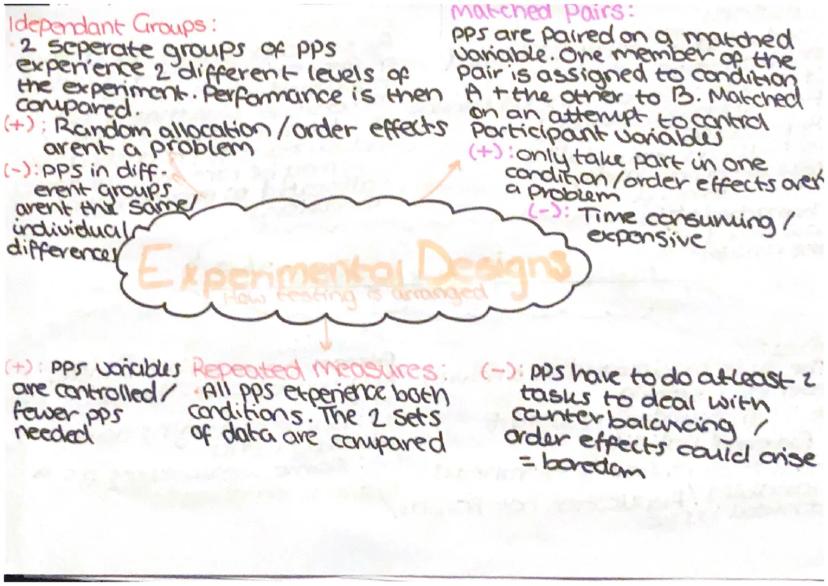 Idependant Groups:
· 2 seperate groups of pps
experience 2 different levels of
the experiment. Performance is then
compared.
(+): Random allocation / order effects
arent a problem
(-): PPS in diff-
erent groups
arent the same/
individual
differences
Matched Pairs:
PPS are paired on a matched
variable. One member of the
pair is assigned to condition
A + the other to B. Matched
on an attempt to control
Participant variables
(+): only take part in one
condition/order effects aren
a problem
(-): Time consuming /
expensive
Experimental Designs
How testing is arranged
(+): PPS variables
are controlled/
fewer pps
needed
Repeated measures:
· All pps experience both
conditions. The 2 sets
of data are compared
(-): PPS have to do atleast 2
tasks to deal with
counterbalancing /
order effects could arise
= boredom